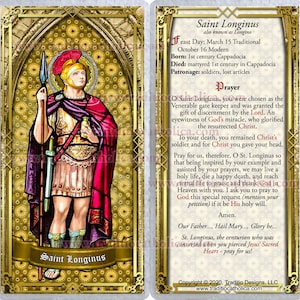 Saint Longinus
Saint Longinus
also known as Longinus
Feast Day: March 15 Traditional
October 16 Modern
Born: 1st century Cappadocia
Died: martyred 1st century in Cappadocia
Patronage: soldiers, lost articles
Prayer
O Saint Longinus, you were chosen as the
venerable gate keeper and was granted the
gift of discernment by the Lord. An
eyewitness of God's miracle, who glorified
the resurrected Christ.
To your death, you remained Christ's
soldier and for Christ you gave your head.
Pray for us, therefore, O St. Longinus so
that being inspired by your example and
assisted by your prayers, we may live a
holy life, die a happy death, and reach
eternal life to praise and thank God in
Heaven with you. I ask you to pray to
God this special request (mention your
petition) if it be His holy will.
Amen.
Our Father... Hail Mary... Glory be...
St. Longinus, the centurion who was
converted when you pierced Jesus' Sacred
Heart - pray for us!
Copyright © 2020, Traditio Designs, LLC
www.TraditioCatholica.com